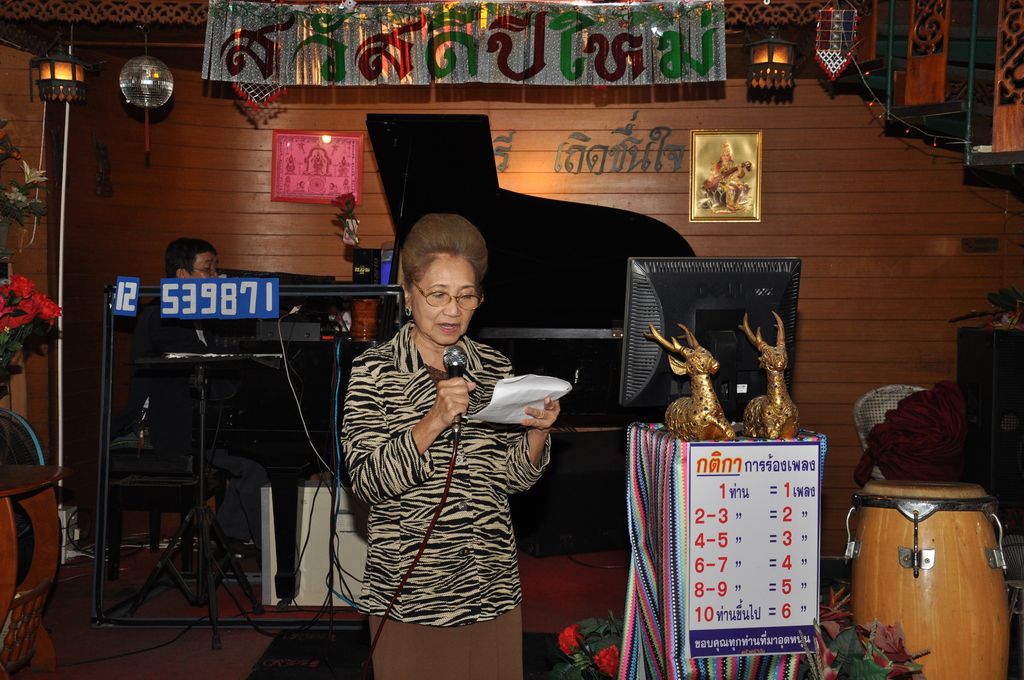 สวัสดีปีใหม่
รี เถิดชื่นใจ
12 539871
DELL
กติกา การร้องเพลง
1 ท่าน = 1 เพลง
2-3 " = 2 "
4-5 " = 3 "
6-7 " = 4 "
8-9 " = 5 "
10 ท่านขึ้นไป = 6 "
ขอบคุณทุกท่านที่มาอุดหนุน